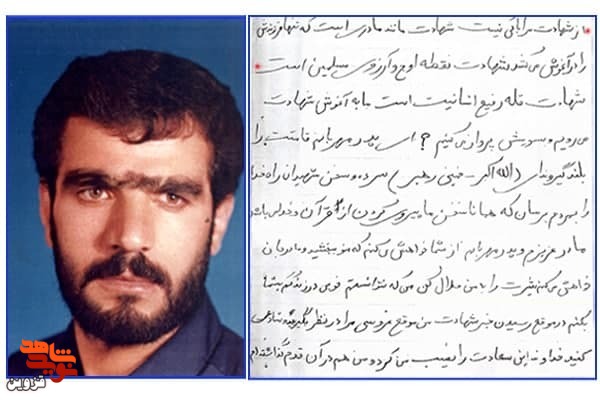 از شهادت مرا باکی نیست شهادت مانند مادری است که تنها فرزندش
را در آغوش می کشد شهادت نقطه اوج و آرزوی مسلمین است
شهادت قله رفیع انسانیت است ما به آغوش شهادت
می رویم و بسویش پرواز می کنیم ای پدر مهربانم قامتت را
بلند گیر و ندای (الله اکبر - خمینی رهبر) سرده و سخن شهیدان راه خدا
را بمردم برسان که همانا سخن ما پیروی کردن از قرآن و خدا می باشد
مادر عزیزم و پدر مهربانم از شما خواهش می کنم که مرا ببخشید و مادر جان
خواهش می کنم شیرت را به من حلال کن من که نتوانستم در زندگیم بشما
بکنم در موقع رسیدن خبر شهادت من موقع عروسی مرا در نظر بگیرید و شادی
کنید خداوند این سعادت را نصیب من کرد و من هم در آن قدم گذاشته ام
نوید شاهد
قزوین